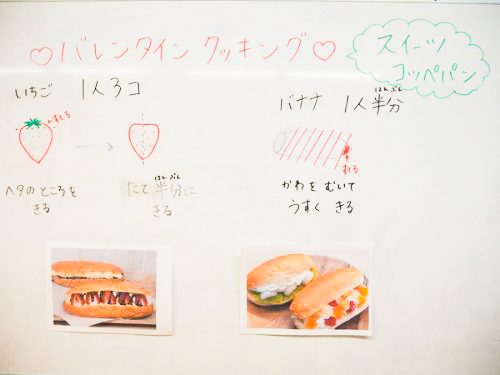 ♡バレンタイン クッキング♡
スイーツ
コッペパン
いちご 1人3コ
すてる
ヘタのところを
きる
はんぶん
たて半分に
きる
はんぶん
バナナ 1人半分
すてる
かわをむいて
うすくきる